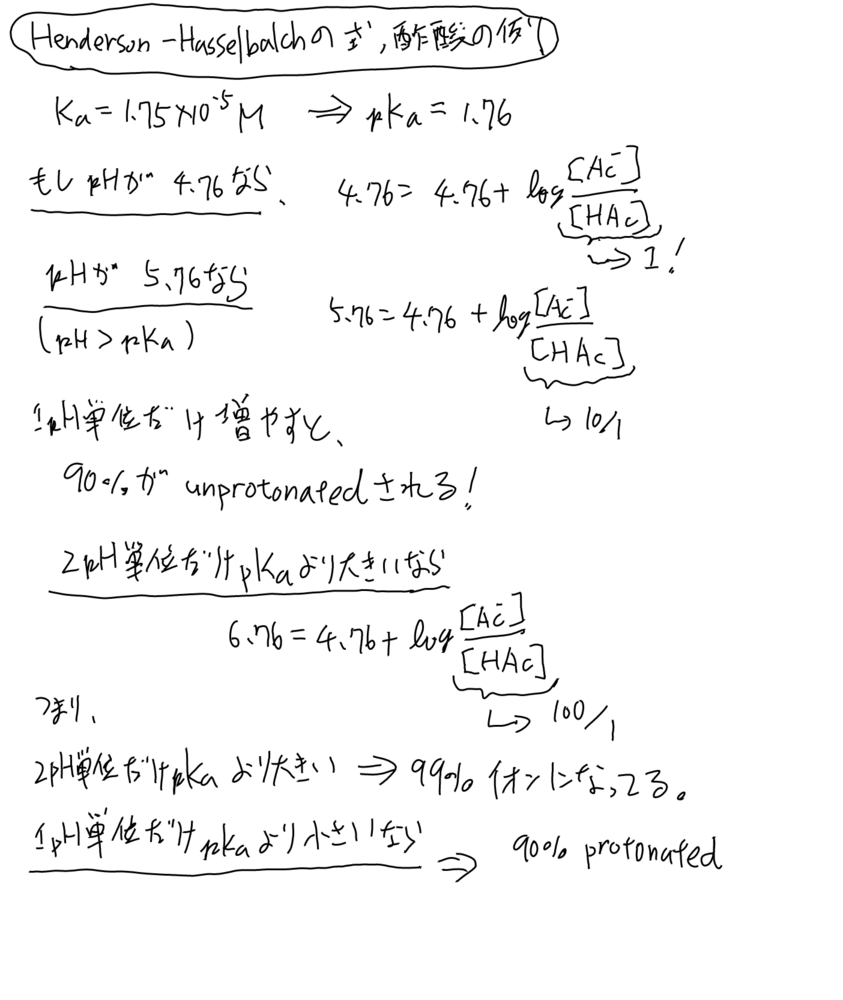 Henderson-Hasselbalchの式,酢酸の例
Ka = 1.75×10⁻⁵ M ⇒ pKa = 1.76
もし pHが 4.76なら、 4.76 = 4.76 + log [Ac⁻]/[HAc]
↳ 1!
pHが 5.76なら
(pH > pKa)
5.76 = 4.76 + log [Ac⁻]/[HAc]
↳ 10/1
1pH単位だけ増やすと、
90%が unprotonatedされる!
2pH単位だけpKaより大きいなら
6.76 = 4.76 + log [Ac⁻]/[HAc]
↳ 100/1
つまり、
2pH単位だけpKaより大きい ⇒ 99% イオンになってる。
1pH単位だけpKaより小さいなら ⇒ 90% protonated